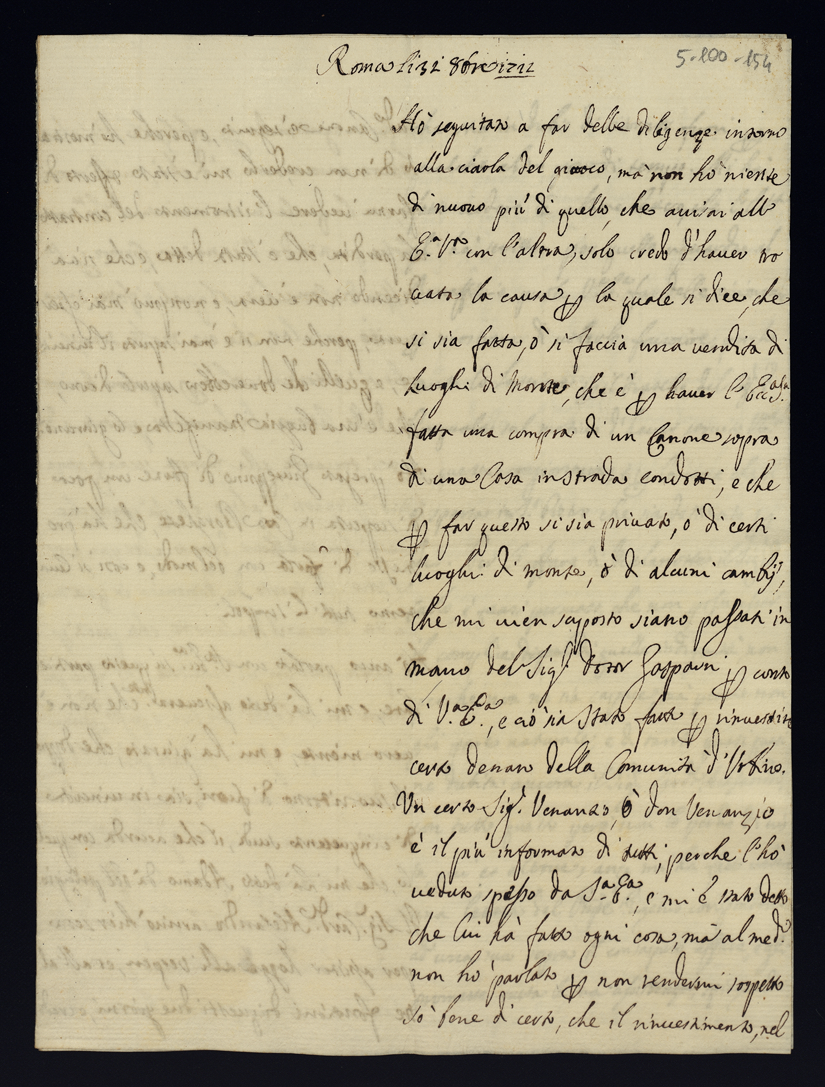 Roma li 31 8bre 1711
5-100-154
Hò seguitato a far delle diligenze intorno
alla ciarla del giuoco, mà non hò niente
di nuovo più di quello, che avisai all
E.a V.ra con l'altra, solo credo d'haver tro
vata la causa p la quale si dice, che
si sia fatta, ò si faccia una vendita di
luoghi di Monte, che è p haver l'Ecc.a Sua
fatta una compra di un Canone sopra
di una Casa in strada condotti, e che
p far questo si sia privato, ò di certi
luoghi di monte, ò di alcuni cambij,
che mi vien supposto siano passati in
mano del Sig.r dottor Gasparri p conto
di V.a E.a, e ciò sia stato fatto p rinvestire
certo denaro della Comunità d'Urbino.
Un certo Sig.r Venanzo, ò don Venanzio
è il più informato di tutti, perche l'hò
veduto spesso da S.a E.a, e mi è stato detto
che lui hà fatto ogni cosa, mà al med.o
non hò parlato p non rendermi sospetto
sò bene di certo, che il rinvestimento, nel